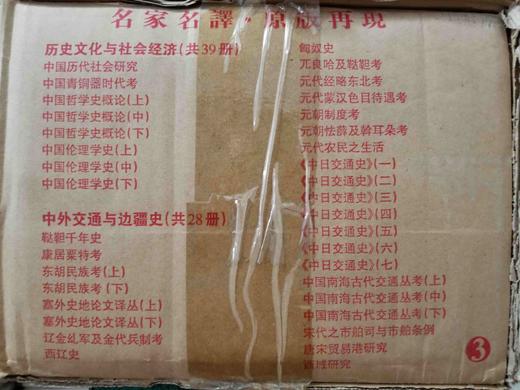 名家名譯·原版再現
历史文化与社会经济(共39册)
中国历代社会研究
中国青铜器时代考
中国哲学史概论(上)
中国哲学史概论(中)
中国哲学史概论(下)
中国伦理学史(上)
中国伦理学史(中)
中国伦理学史(下)
中外交通与边疆史(共28册)
鞑靼千年史
康居粟特考
东胡民族考(上)
东胡民族考(下)
塞外史地论文译丛(上)
塞外史地论文译丛(下)
辽金乣军及金代兵制考
西辽史
匈奴史
兀良哈及鞑靼考
元代经略东北考
元代蒙汉色目待遇考
元朝制度考
元朝怯薛及斡耳朵考
元代农民之生活
《中日交通史》(一)
《中日交通史》(二)
《中日交通史》(三)
《中日交通史》(四)
《中日交通史》(五)
《中日交通史》(六)
《中日交通史》(七)
中国南海古代交通丛考(上)
中国南海古代交通丛考(中)
中国南海古代交通丛考(下)
宋代之市舶司与市舶条例
唐宋贸易港研究
西域研究
3